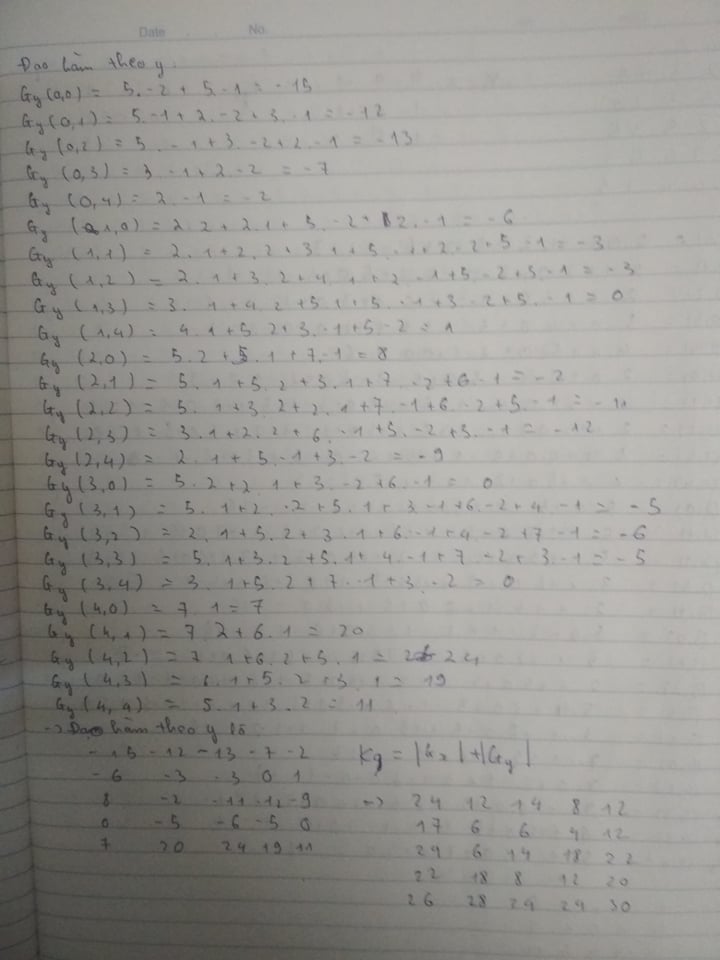 Date No.
Đạo hàm theo y.
Gy (0,0) = 5.-2 + 5.-1 = -15
Gy (0,1) = 5.-1 + 2.-2 + 3.-1 = -12
Gy (0,2) = 5.-1 + 3.-2 + 2.-1 = -13
Gy (0,3) = 3.-1 + 2.-2 = -7
Gy (0,4) = 2.-1 = -2
Gy (1,0) = 2.2 + 2.1 + 5.-2 + 2.-1 = -6
Gy (1,1) = 2.1 + 2.2 + 3.1 + 5.-1 + 2.-2 + 5.-1 = -3
Gy (1,2) = 2.1 + 3.2 + 4.1 + 2.-1 + 5.-2 + 3.-1 = -3
Gy (1,3) = 3.1 + 4.2 + 5.1 + 5.-1 + 3.-2 + 5.-1 = 0
Gy (1,4) = 4.1 + 5.2 + 3.-1 + 5.-2 = 1
Gy (2,0) = 5.2 + 5.1 + 7.-1 = 8
Gy (2,1) = 5.1 + 5.2 + 3.1 + 7.-2 + 6.-1 = -2
Gy (2,2) = 5.1 + 3.2 + 2.1 + 7.-1 + 6.-2 + 5.-1 = -11
Gy (2,3) = 3.1 + 2.2 + 6.-1 + 5.-2 + 3.-1 = -12
Gy (2,4) = 2.1 + 5.-1 + 3.-2 = -9
Gy (3,0) = 5.2 + 2.1 + 3.-2 + 6.-1 = 0
Gy (3,1) = 5.1 + 2.2 + 5.1 + 3.-1 + 6.-2 + 4.-1 = -5
Gy (3,2) = 2.1 + 5.2 + 3.1 + 6.-1 + 4.-2 + 7.-1 = -6
Gy (3,3) = 5.1 + 3.2 + 5.1 + 4.-1 + 7.-2 + 3.-1 = -5
Gy (3,4) = 3.1 + 5.2 + 7.-1 + 3.-2 = 0
Gy (4,0) = 7.1 = 7
Gy (4,1) = 7.2 + 6.1 = 20
Gy (4,2) = 7.1 + 6.2 + 5.1 = 24
Gy (4,3) = 6.1 + 5.2 + 3.1 = 19
Gy (4,4) = 5.1 + 3.2 = 11
-> Đạo hàm theo y là
-15 -12 -13 -7 -2 Kq = |Gx| + |Gy|
-6 -3 -3 0 1
8 -2 -11 -12 -9 => 24 12 14 8 12
0 -5 -6 -5 0 17 6 6 4 12
7 20 24 19 11 24 6 14 18 22
22 18 8 12 20
26 28 24 24 30